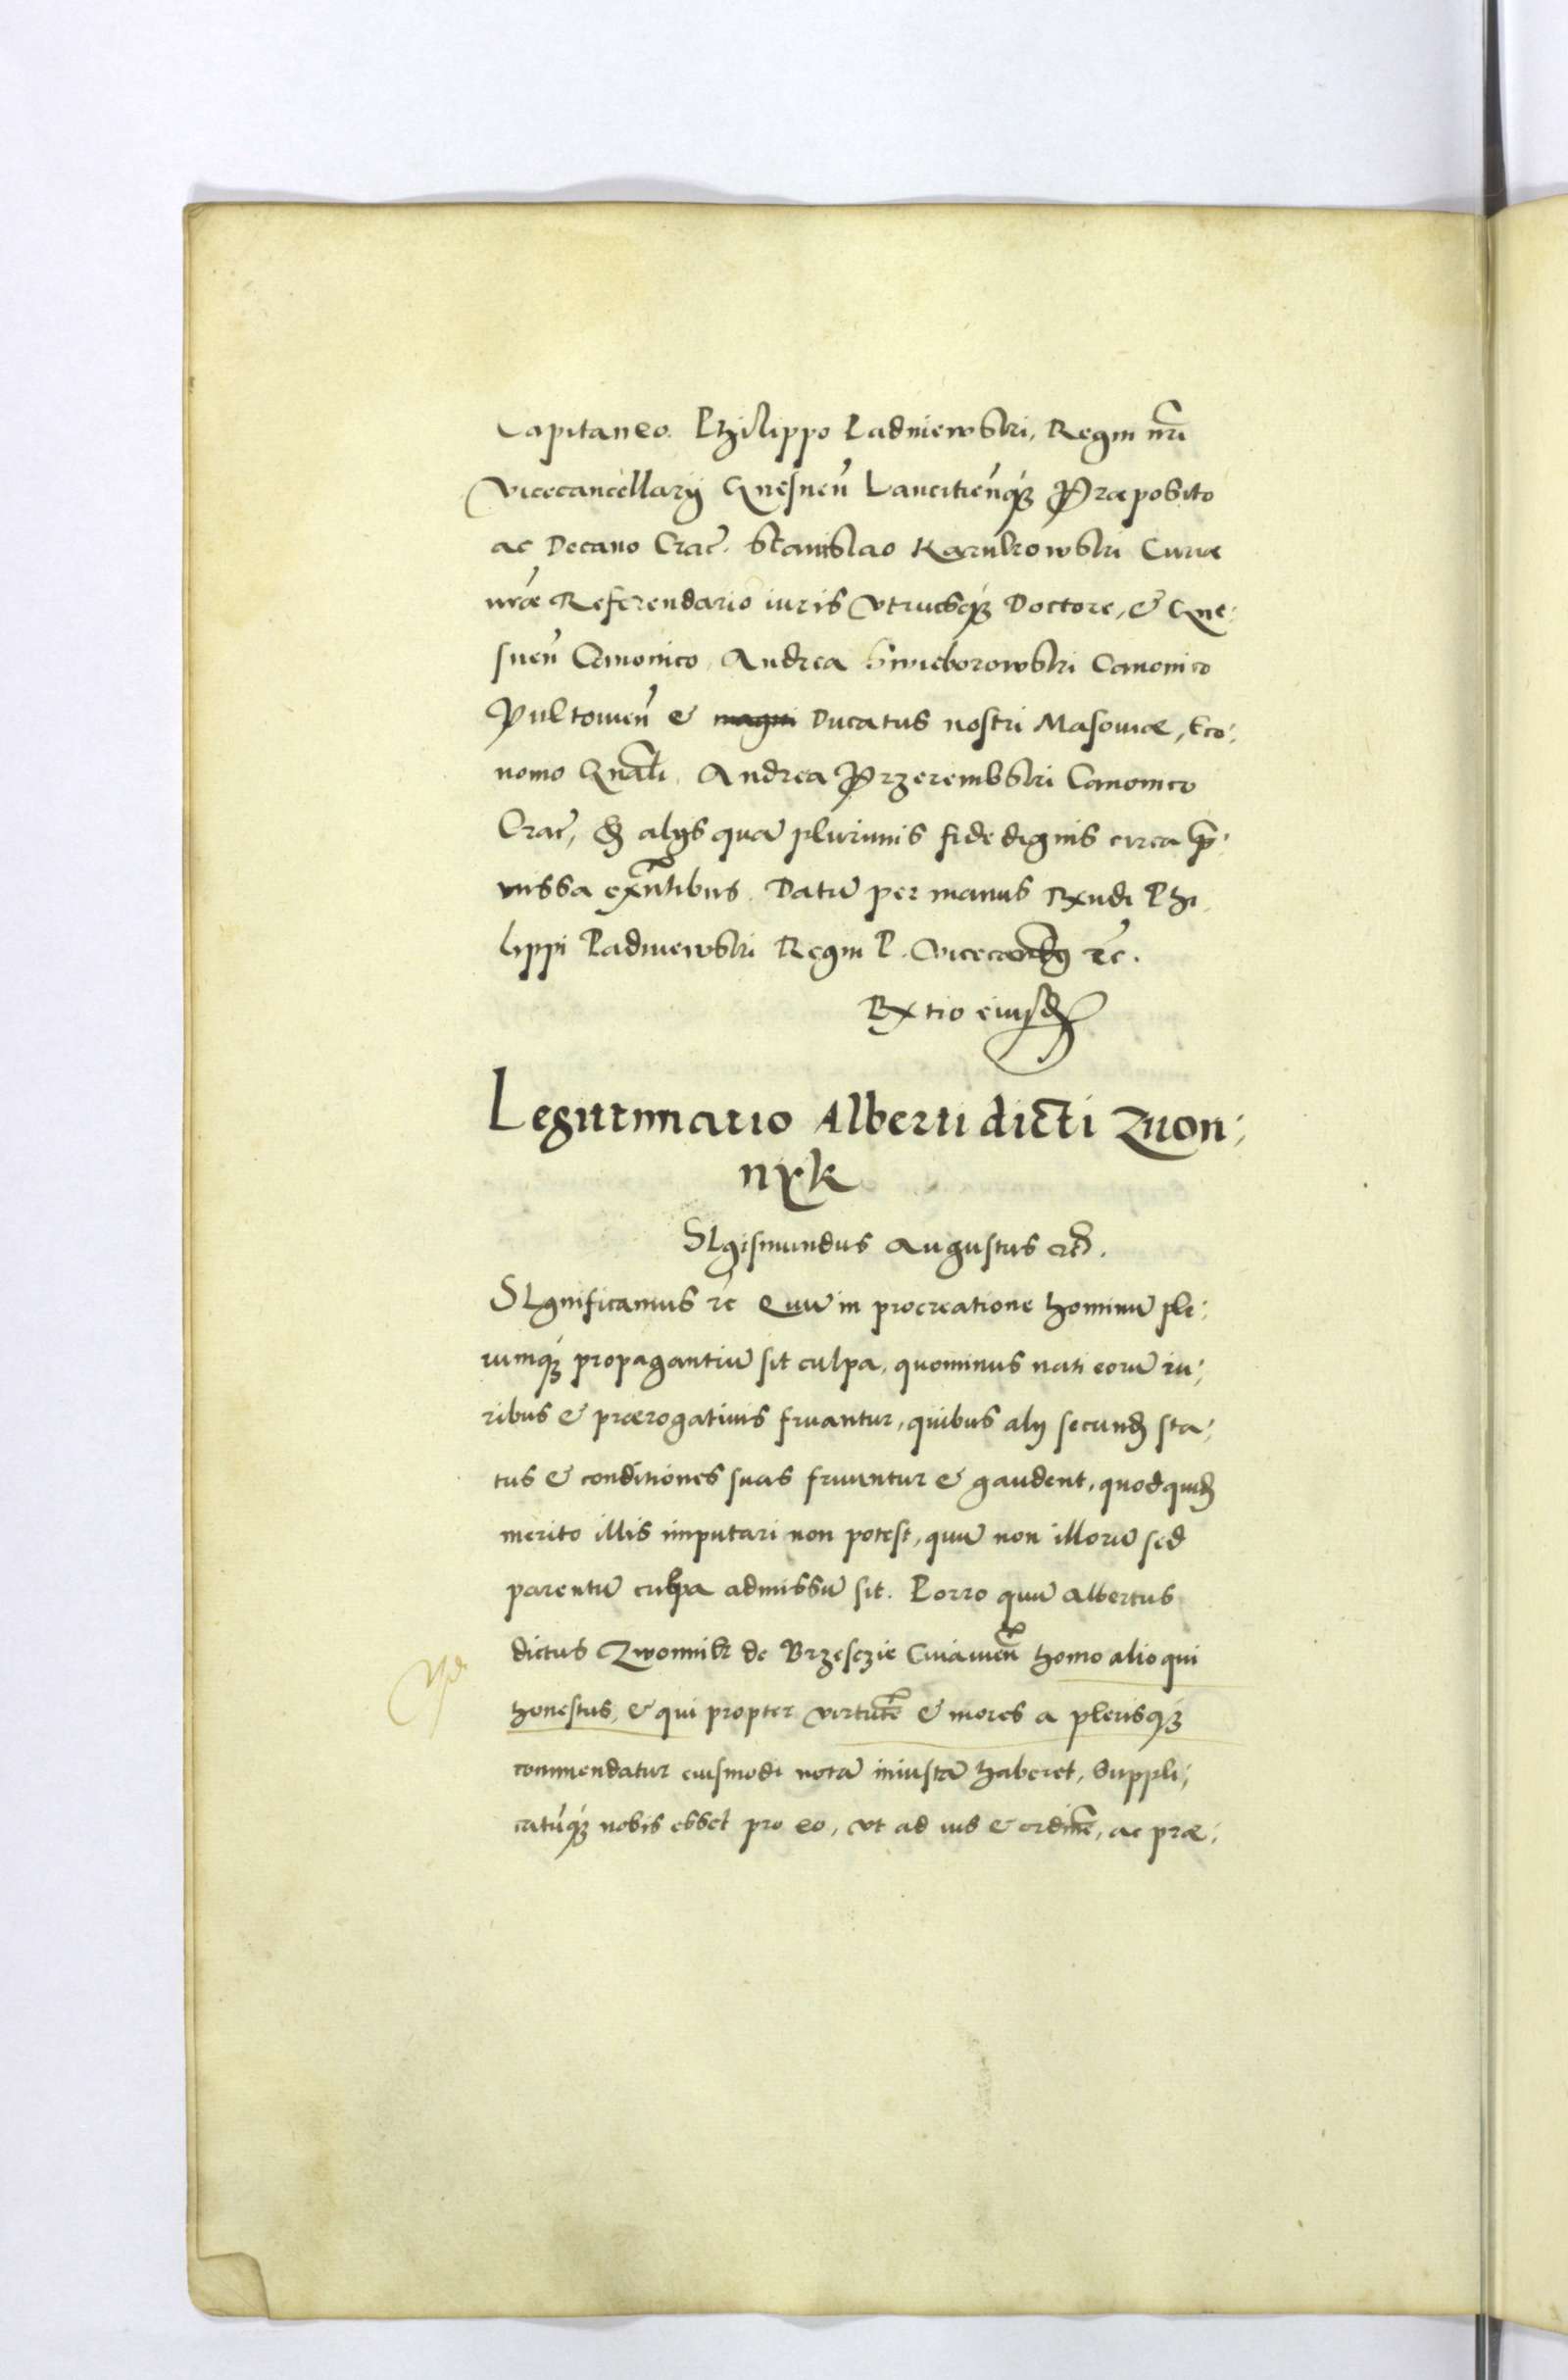 Capitaneo. Philippo Padniewski, Regni nrī
Vicecancellarij Gnesneñ Lancitieñq3 Præposito
ac Decano Crac̄. Stanislao Karnkowski Curiæ
nr̄æ Referendario iuris Vtriusq3 Doctore, & Gne:
sneñ Canonico, Andrea Swieborowski Canonico
Pultouieñ & magni Ducatus nostri Masouiæ, Eco:
nomo Gn̄ali. Andrea Przerembski Canonico
Crac̄, & alijs quā plurimis fide dignis circa p̄:
missa exñtibus. Datū per manus Rxndi Phi
lippi Padniewski Regni P. Vicecancellarij etc̄.
Rxtio eiusd
Legittimatio Alberti dicti Zuon:
nyk
SIgismundus Augustus etc̄.
SIgnificamus etc̄ Quū in procreatione hominū ple:
rumq3 propagantiū sit culpa, quominus nati eorū iu:
ribus & prærogatiuis fruantur, quibus alij secundū sta:
tus & conditiones suas fruuntur & gaudent, quod quidē
merito illis imputari non potest, quū non illorū sed
parentū culpa admissū sit. Porro quū Albertus
dictus Zwonnik de Brzesczie Cuiauieñ homo alioqui
honestus, & qui propter virtutē & mores a plerisq3
commendatur eiusmodi notā iniustā haberet, Suppli:
catūq3 nobis esset pro eo, vt ad ius & ordinē, ac præ: